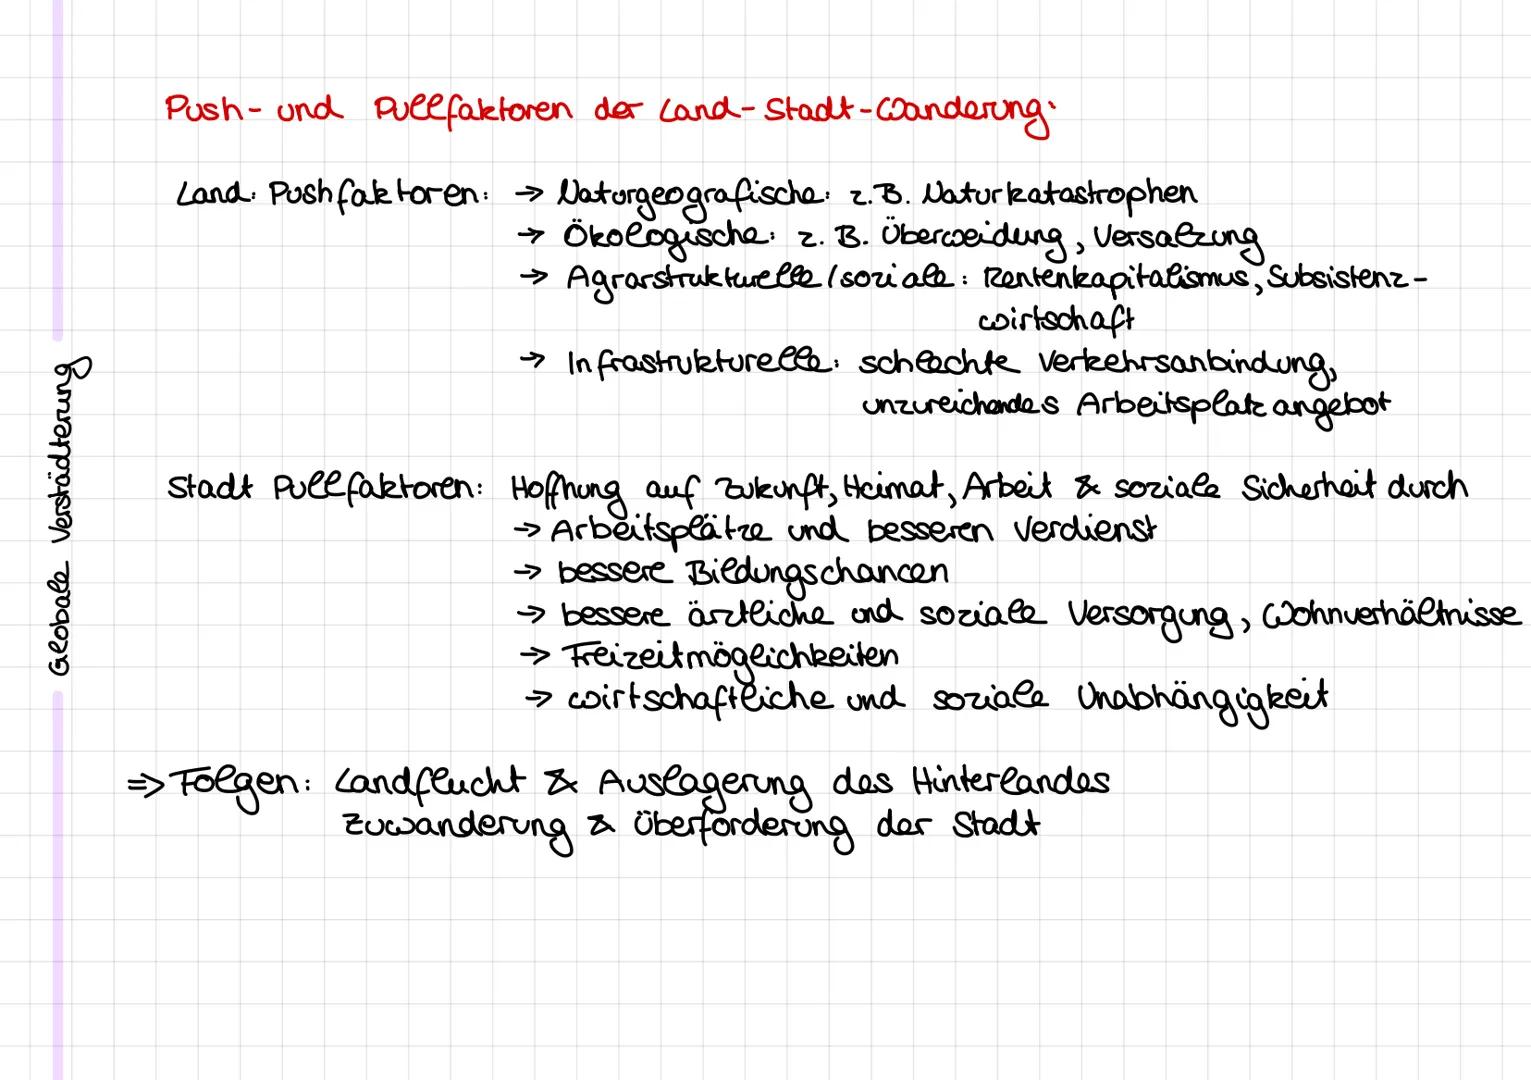 Push- und Pullfaktoren der Land-Stadt-Wanderung:
Land: Pushfaktoren: → Naturgeografische: z.B. Naturkatastrophen
→ Ökologische: z. B. Überweidung, Versalzung
→ Agrarstrukturelle/soziale: Rentenkapitalismus, Subsistenz-
wirtschaft
→ Infrastrukturelle: schlechte Verkehrsanbindung,
unzureichendes Arbeitsplatzangebot
Globale Verstädterung
Stadt Pullfaktoren: Hoffnung auf Zukunft, Heimat, Arbeit & soziale Sicherheit durch
→ Arbeitsplätze und besseren Verdienst
→ bessere Bildungschancen
→ bessere ärztliche und soziale Versorgung, Wohnverhältnisse
→ Freizeitmöglichkeiten
→ wirtschaftliche und soziale Unabhängigkeit
⇒ Folgen: Landflucht & Auslagerung des Hinterlandes
Zuwanderung & Überforderung der Stadt